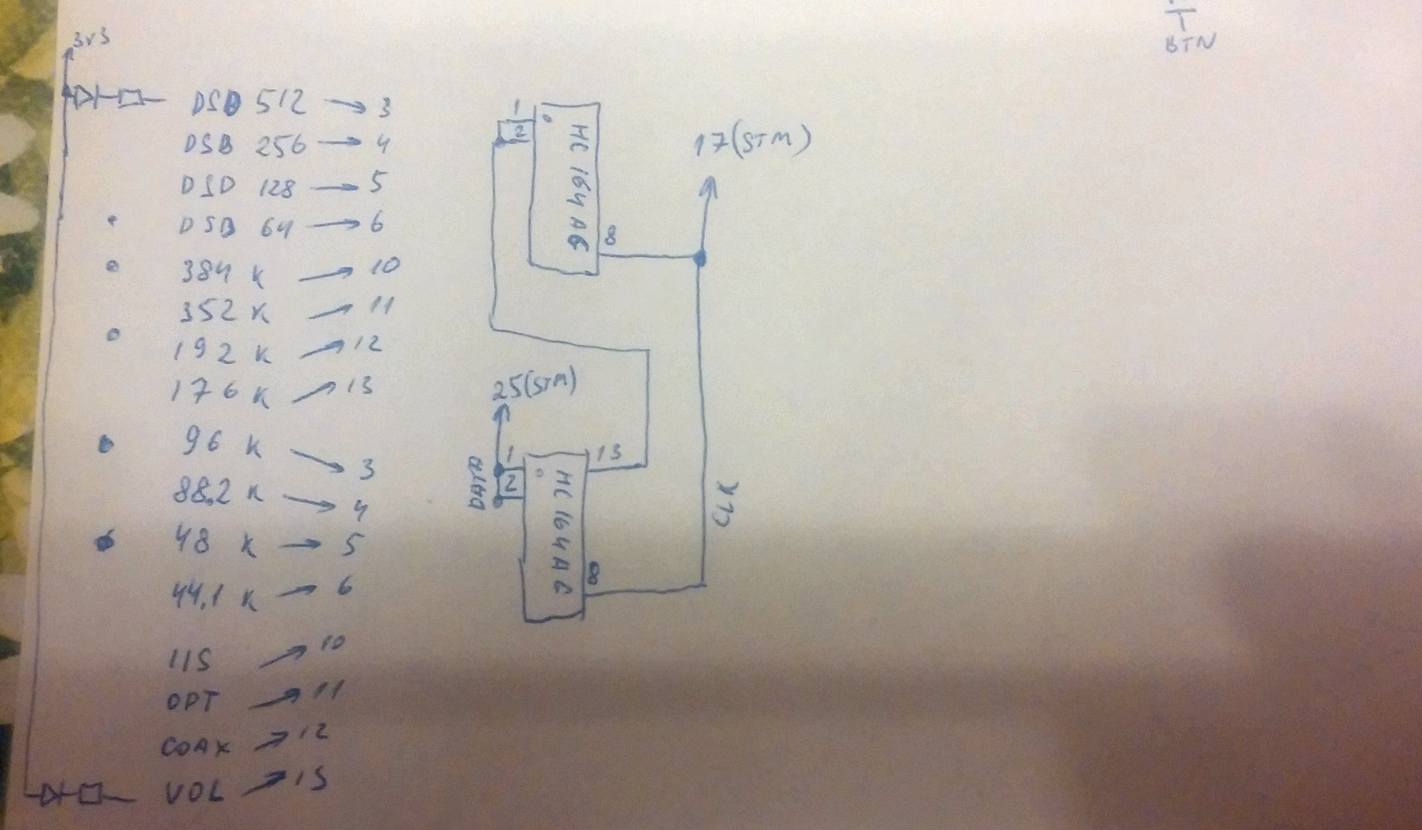 3v3
DSD 512 → 3
DSD 256 → 4
DSD 128 → 5
DSD 64 → 6
384 K → 10
352 K → 11
192 K → 12
176 K → 13
96 K → 3
88,2 K → 4
48 K → 5
44,1 K → 6
IIS → 10
OPT → 11
COAX → 12
VOL → 13
1
2
HC 164 AG
8
17(STM)
25(STM)
DATA
1
2
HC 164 AG
13
8
CLK
BTN